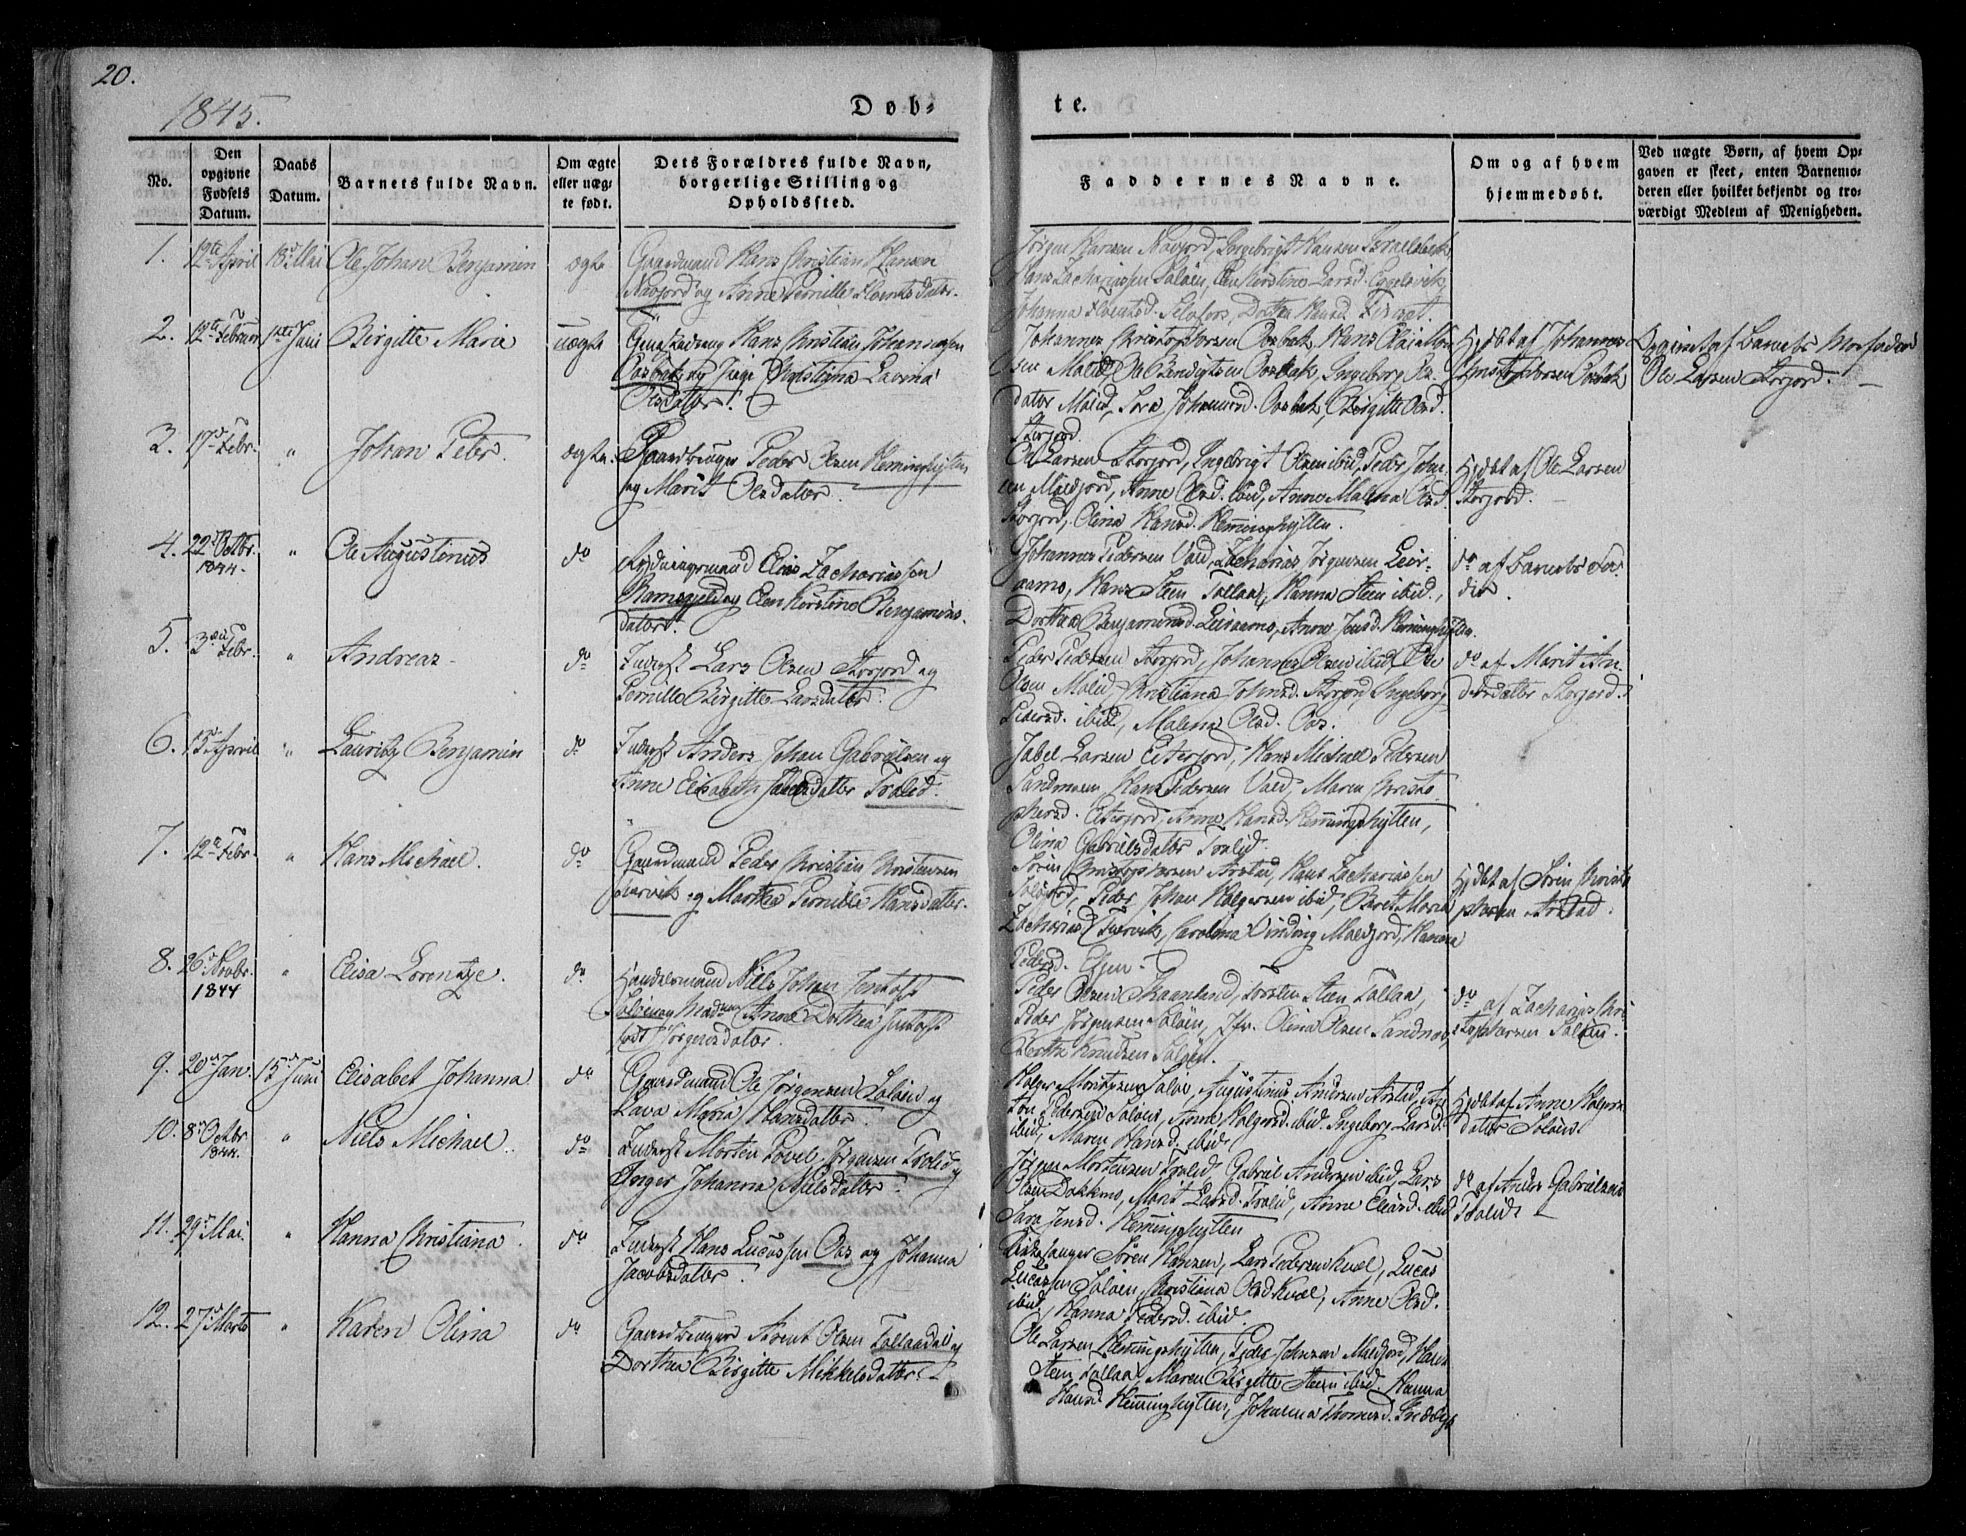 20.
1845.
Døb-
te.
No.
Den opgivne Fødsels Datum.
Daabs Datum.
Barnets fulde Navn.
Om ægte eller uæg- te født.
Dets Forældres fulde Navn, borgerlige Stilling og Opholdssted.
Faddernes Navne.
Om og af hvem hjemmedøbt.
Ved uægte Børn, af hvem Op- gaven er skeet, enten Barnemo- deren eller hvilket bekjendt og tro- værdigt Medlem af Menigheden.
1. 12te April 18de Mai Ole Johan Benjamin ægte
Gaardmand Hans Christian Hansen
Navjord og Anne Pernille
Jørgen Hansen Navjord, Ingebrigt Hansen
Hans Zachariassen Saløen, Elen Kirstine Larsd.
Johanna Selfors, Dorthea Hansd.
2. 12te Februar 1ste Juni Birgitte Maria uægte
Hans Christian Johannessen
Oosbak og Pige Christiana Lavina
Olsdatter.
Johannes Christophersen Oosbak, Hans
Olsen Molid, Ole Bendigtsen Oosbak, Ingeborg
datter Molid, Sara Johannesd. Oosbak, Birgitte Olsd.
Storjord.
Hjdøbt af Johannes
Christophersen Oosbak
Opgivet af Barnets Morfader
Ole Larsen Storjord.
3. 17de Febr. " Johan Peter ægte.
Gaardbruger Peder Olsen Hemminghytten
og Marit Olsdatter.
Ole Larsen Storjord, Ingebrigt Olsen ibid, Peder John-
sen Moldjord, Anne Olsd. ibid, Anne Malena Olsd.
Storjord, Olina Hansd. Hemminghytten.
Hjdøbt af Ole Larsen
Storjord.
4. 22de Octbr. 1844. " Ole Augustinus do
Rydningsmand Elias Zachariassen
Ramsgjeld og Elen Kirstine Benjamins-
datter.
Johannes Pedersen Vald, Zacharias Jørgensen Leir-
aamo, Hans Steen Tollaa, Hanna Steen ibid.,
Dorthea Benjaminsd. Leiraamo, Anne Jensd. Heminghytten.
do af Barnets Fa-
der.
5. 3die Febr. " Andreas do
Inderst Lars Olsen Storjord og
Pernille Birgitte Larsdatter.
Peder Pedersen Storjord, Johannes Olsen ibid, Ole
Olsen Molid, Christiana Johnsd. Storjord, Ingeborg
Pedersd. ibid, Malena Olsd. Oos.
do af Marit An-
dersdatter Storjord.
6. 13de April " Lauritz Benjamin do
Inderst Anders Johan Gabrielsen og
Anne Elisabeth Jabelsdatter Trolid.
Jabel Larsen Eiterjord, Hans Michael Pedersen
Sandmoen, Hans Pedersen Vald, Maren Christo
phersd. Eiterjord, Anne Hansd. Hemminghytten,
Olina Gabrielsdatter Trolid.
7. 12te Febr. " Hans Michael. do
Gaardmand Peder Christian Christensen
Tvervik og Marthea Pernille Hansdatter.
Søren Christophersen Arstad, Hans Zachariassen
Peder Johan Holgersen ibid, Beret Maria
Zachariasd. Tvervik, Carolina Vinding Moldjord, Hanna
Pedersd.
Hjdøbt af Søren Christo
phersen Arstad.
8. 26de Novbr. 1844 " Elisa Lorentze. do
Handelsmand Niels Johan Jentoft
Saløen og Madam Anne Dorthea Jentoft
født Jørgensdatter.
Peder Olsen Skaanland, Torsten Steen Tollaa,
Peder Jørgensen Saløen, Jfr. Olina Olsen Sandnes,
Berthe Knudsen Saløen.
do af Zacharias Chri-
stophersen Saløen.
9. 20de Jan. 15de Juni Elisabet Johanna do
Gaardmand Ole Jørgensen Saløen og
Lava Maria Hansdatter.
Holger Mortensen Saløe, Augustinus Andersen Arstad, An-
ton Pedersen Saløen, Anne Holgersd. ibid, Ingeborg Larsd.
ibid, Maren Hansd. ibid.
Hjdøbt af Anne Holgers-
datter Saløen.
10. 8de Octbr. 1844. " Niels Michael. do
Inderst Morten Povel Jørgensen Trolid og
Inger Johanna Nielsdatter.
Jørgen Mortensen Trolid, Gabriel Andersen ibid, Lars
Olsen Dokkmo, Marit Larsd. Trolid, Anne Eliasd. ibid
Sara Jensd. Hemminghytten
do af Anders Gabrielsen
Trolid.
11. 29de Mai. " Hanna Christiana. do
Inderst Hans Lucassen Oos og Johanna
Jacobsdatter.
Kirkesanger Søren Hansen, Lars Pedersen Kvæl, Lucas
Lucassen Saløen, Christiana Olsd Kvæl, Anne Olsd.
ibid, Hanna Pedersd. ibid.
12. 27de Marts " Karen Olina do
Gaardbruger Arent Olsen Tollaadal og
Dorthea Birgitte Mikkelsdatter.
Ole Larsen Hemminghytten, Peder Johnsen Moldjord, Hans
Steen Tollaa, Maren Birgitte Steen ibid, Hanna
Hansd Hemminghytten, Johanna Thomasd.